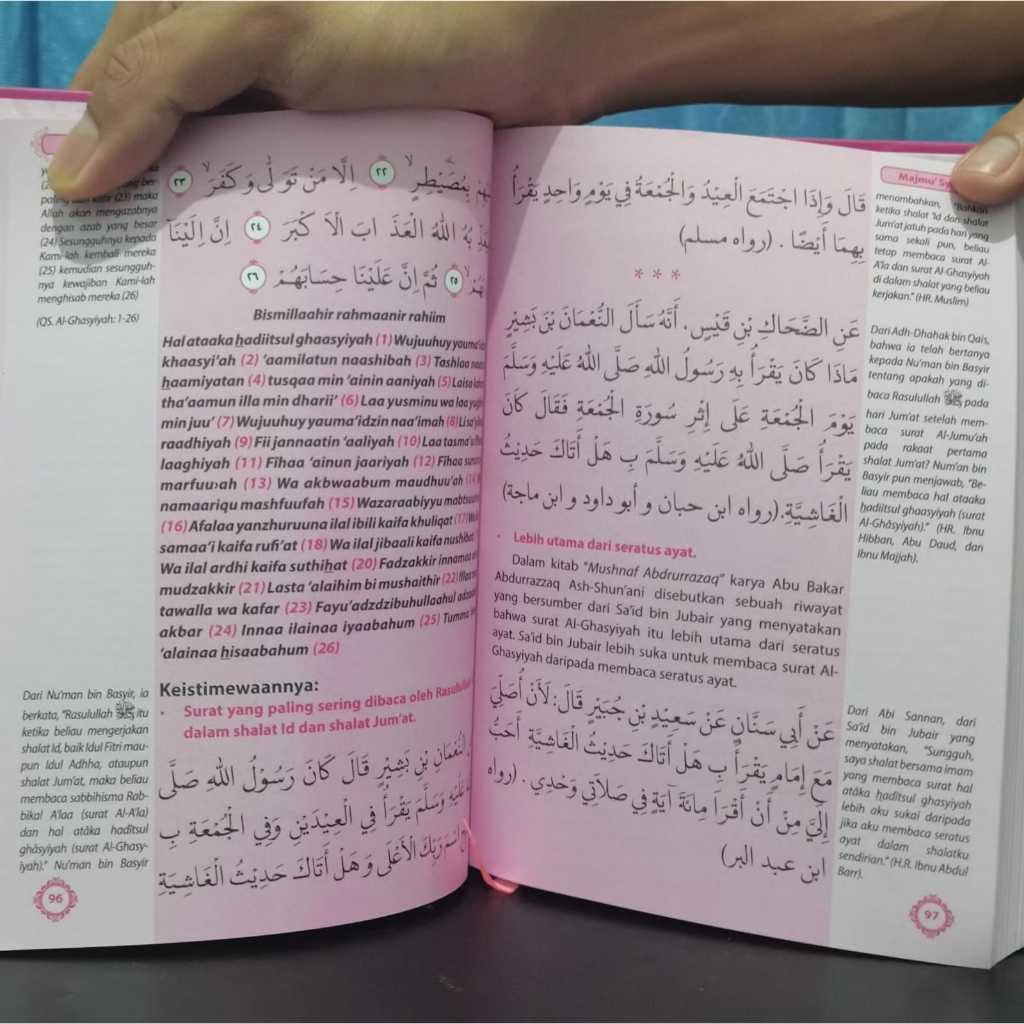 paling
kafir (23) maka
Allah akan mengazabnya
dengan azab yang besar
(24) Sesungguhnya kepada
Kami-lah kembali mereka
(25) kemudian sesungguh-
nya kewajiban Kami-lah
menghisab mereka (26)
(QS. Al-Ghasyiyah: 1-26)
بِمُصَيْطِرٍ ۙ ٢٢ اِلَّا مَنْ تَوَلّٰى وَكَفَرَ ۙ ٢٣
بُهُ اللّٰهُ الْعَذَابَ الْاَكْبَرَ ٢٤ اِنَّ اِلَيْنَآ
٢٥ ثُمَّ اِنَّ عَلَيْنَا حِسَابَهُمْ ٢٦
Bismillaahir rahmaanir rahiim
Hal ataaka hadiitsul ghaasyiyah (1) Wujuuhuy yauma'i
khaasyi'ah (2) 'aamilatun naashibah (3) Tashlaa naa
haamiyatan (4) tusqaa min 'ainin aaniyah (5) Laisa
tha'aamun illa min dharii' (6) Laa yusminu wa laa yugh
min juu' (7) Wujuuhuy yauma'idzin naa'imah (8) Lisa'y
raadhiyah (9) Fii jannaatin 'aaliyah (10) Laa tasma'u
laaghiyah (11) Fîhaa 'ainun jaariyah (12) Fîhaa suru
marfuu›ah (13) Wa akbwaabum maudhuu'ah (14)
namaariqu mashfuufah (15) Wazaraabiyyu mabtsuu
(16) Afalaa yanzhuruuna ilal ibili kaifa khuliqat (17)
samaa'i kaifa rufi'at (18) Wa ilal jibaali kaifa nushibat
Wa ilal ardhi kaifa suthihat (20) Fadzakkir innamaa
mudzakkir (21) Lasta 'alaihim bi mushaithir (22) Illaa
tawalla wa kafar (23) Fayu'adzdzibuhullaahul adzaa
akbar (24) Innaa ilainaa iyaabahum (25) Tumma
'alainaa hisaabahum (26)
Keistimewaannya:
- Surat yang paling sering dibaca oleh Rasulullah
dalam shalat Id dan shalat Jum'at.
Dari Nu'man bin Basyir, ia
berkata, "Rasulullah ﷺ itu
ketika beliau mengerjakan
shalat Id, baik Idul Fitri mau-
pun Idul Adhha, ataupun
shalat Jum'at, maka beliau
membaca sabbihisma Rab-
bikal A'laa (surat Al-A'la)
dan hal atâka hadîtsul
ghâsyiyah (surat Al-Ghasy-
iyah)." Nu'man bin Basyir
النُّعْمَانِ بْنِ بَشِيْرٍ قَالَ كَانَ رَسُوْلُ اللهِ صَلَّى
عَلَيْهِ وَسَلَّمَ يَقْرَأُ فِي الْعِيْدَيْنِ وَفِي الْجُمُعَةِ بِ
اسْمَ رَبِّكَ الْأَعْلَى وَهَلْ أَتَاكَ حَدِيْثُ الْغَاشِيَةِ
96
Majmu' Sy
قَالَ وَإِذَا اجْتَمَعَ الْعِيْدُ وَالْجُمُعَةُ فِي يَوْمٍ وَاحِدٍ يَقْرَأُ
بِهِمَا أَيْضًا . (رواه مسلم)
* * *
عَنِ الضَّحَّاكِ بْنِ قَيْسٍ، أَنَّهُ سَأَلَ النُّعْمَانَ بْنَ بَشِيْرٍ
مَاذَا كَانَ يَقْرَأُ بِهِ رَسُوْلُ اللهِ صَلَّى اللهُ عَلَيْهِ وَسَلَّمَ
يَوْمَ الْجُمُعَةِ عَلَى إِثْرِ سُوْرَةِ الْجُمُعَةِ فَقَالَ كَانَ
يَقْرَأُ صَلَّى اللهُ عَلَيْهِ وَسَلَّمَ بِ هَلْ أَتَاكَ حَدِيْثُ
الْغَاشِيَةِ.(رواه ابن حبان و أبو داود و ابن ماجة)
- Lebih utama dari seratus ayat.
Dalam kitab "Mushnaf Abdrurrazaq" karya Abu Bakar
Abdurrazzaq Ash-Shun'ani disebutkan sebuah riwayat
yang bersumber dari Sa'id bin Jubair yang menyatakan
bahwa surat Al-Ghasyiyah itu lebih utama dari seratus
ayat. Sa'id bin Jubair lebih suka untuk membaca surat Al-
Ghasyiyah daripada membaca seratus ayat.
عَنْ أَبِي سَنَّانٍ عَنْ سَعِيْدِ بْنِ جُبَيْرٍ قَالَ: لَأَنْ أُصَلِّيَ
مَعَ إِمَامٍ يَقْرَأُ بِ هَلْ أَتَاكَ حَدِيْثُ الْغَاشِيَةِ أَحَبُّ
إِلَيَّ مِنْ أَنْ أَقْرَأَ مِائَةَ آيَةٍ فِي صَلَاتِي وَحْدِي . (رواه
ابن عبد البر)
menambahkan, "Bahkan
ketika shalat 'Id dan shalat
Jum'at jatuh pada hari yang
sama sekali pun, beliau
tetap membaca surat Al-
A'la dan surat Al-Ghasyiyah
di dalam shalat yang beliau
kerjakan." (HR. Muslim)
Dari Adh-Dhahak bin Qais,
bahwa ia telah bertanya
kepada Nu'man bin Basyir
tentang apakah yang di-
baca Rasulullah ﷺ pada
hari Jum'at setelah mem-
baca surat Al-Jumu'ah
pada rakaat pertama
shalat Jum'at? Num'an bin
Basyir pun menjawab, "Be-
liau membaca hal ataaka
hadiitsul ghaasyiyah (surat
Al-Ghâsyiyah)." (HR. Ibnu
Hibban, Abu Daud, dan
Ibnu Majjah).
Dari Abi Sannan, dari
Sa'id bin Jubair yang
menyatakan, "Sungguh,
saya shalat bersama imam
yang membaca surat hal
atâka hadîtsul ghasyiyah
lebih aku sukai daripada
jika aku membaca seratus
ayat dalam shalatku
sendirian." (H.R. Ibnu Abdul
Barr).
97